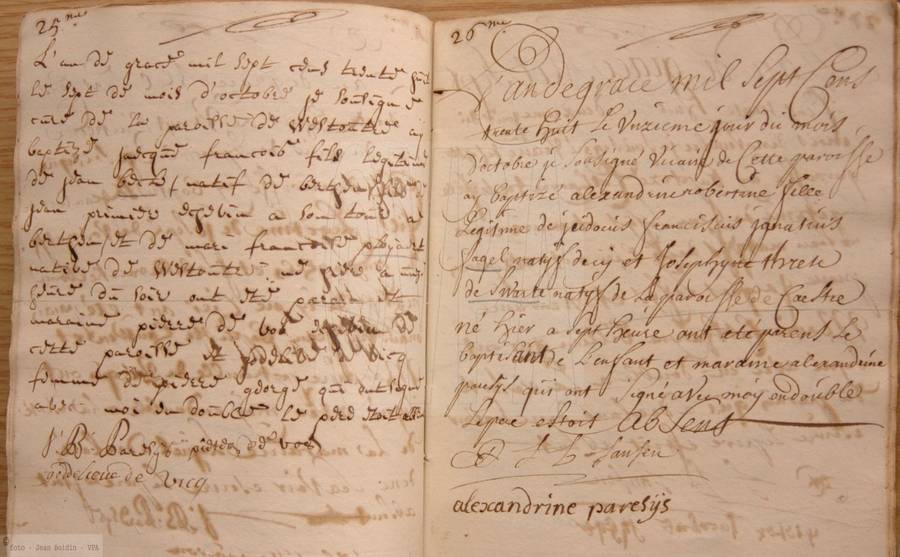 25me
L'an de grace mil sept cens trente huit
le sept de mois d'octobre je sousigné
curé de la paroisse de Westoutre ay
baptizé jacque francois fils legitime
de jean natif de berthen
jean premiere echevin a son tour a
berthen et de mari francoise
native de Westoutre né hier a
heure du soir ont eté parein et
maraine pieere de vos echevin de
cette paroisse et godelieve de Vicq
femme de pieere george qui ont signe
avec moi en double le pere etoit
J: B: Paresys pieeter de vos
godelieve de vicq
26me
L'an de grace mil Sept Cens
trente huit le vnzieme jour du mois
d'octobre je Sousigné Vicaire de Cette paroisse
ay baptizé alexandrine robertine fille
Legitime de judocus franciscus ignatius
Sagel natif decy et Josephyne threse
de Swarte natyf de la paroisse de Caestre
né hier a sept heure ont eté parens Le
baptisant de L'enfant et maraine alexandrine
paresys qui ont Signé avec moy en double
Le pere estoit Absent
Jansen
alexandrine paresys
foto - Jean Boidin - VPA